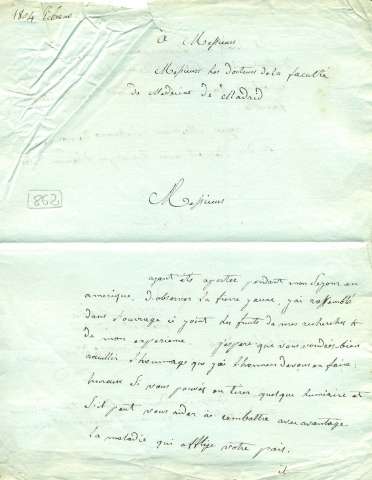 1804 febrero
A Messieurs
Messieurs les docteurs de la faculté
de Medecine de Madrid
862
Messieurs
ayant été apportée pendant mon sejour en
amerique d'observer la fievre jaune, j'ai rassemblé
dans l'ouvrage ci joint les fruits de mes recherches &
de mon experience. j'espere que vous voudrés bien
accuillir l'hommage que j'ai l'honneur de vous en faire;
heureux si vous pouvés en tirer quelque lumiaire et
s'il peut vous aider à combattre avec avantage
la maladie qui afflige votre pais.
il